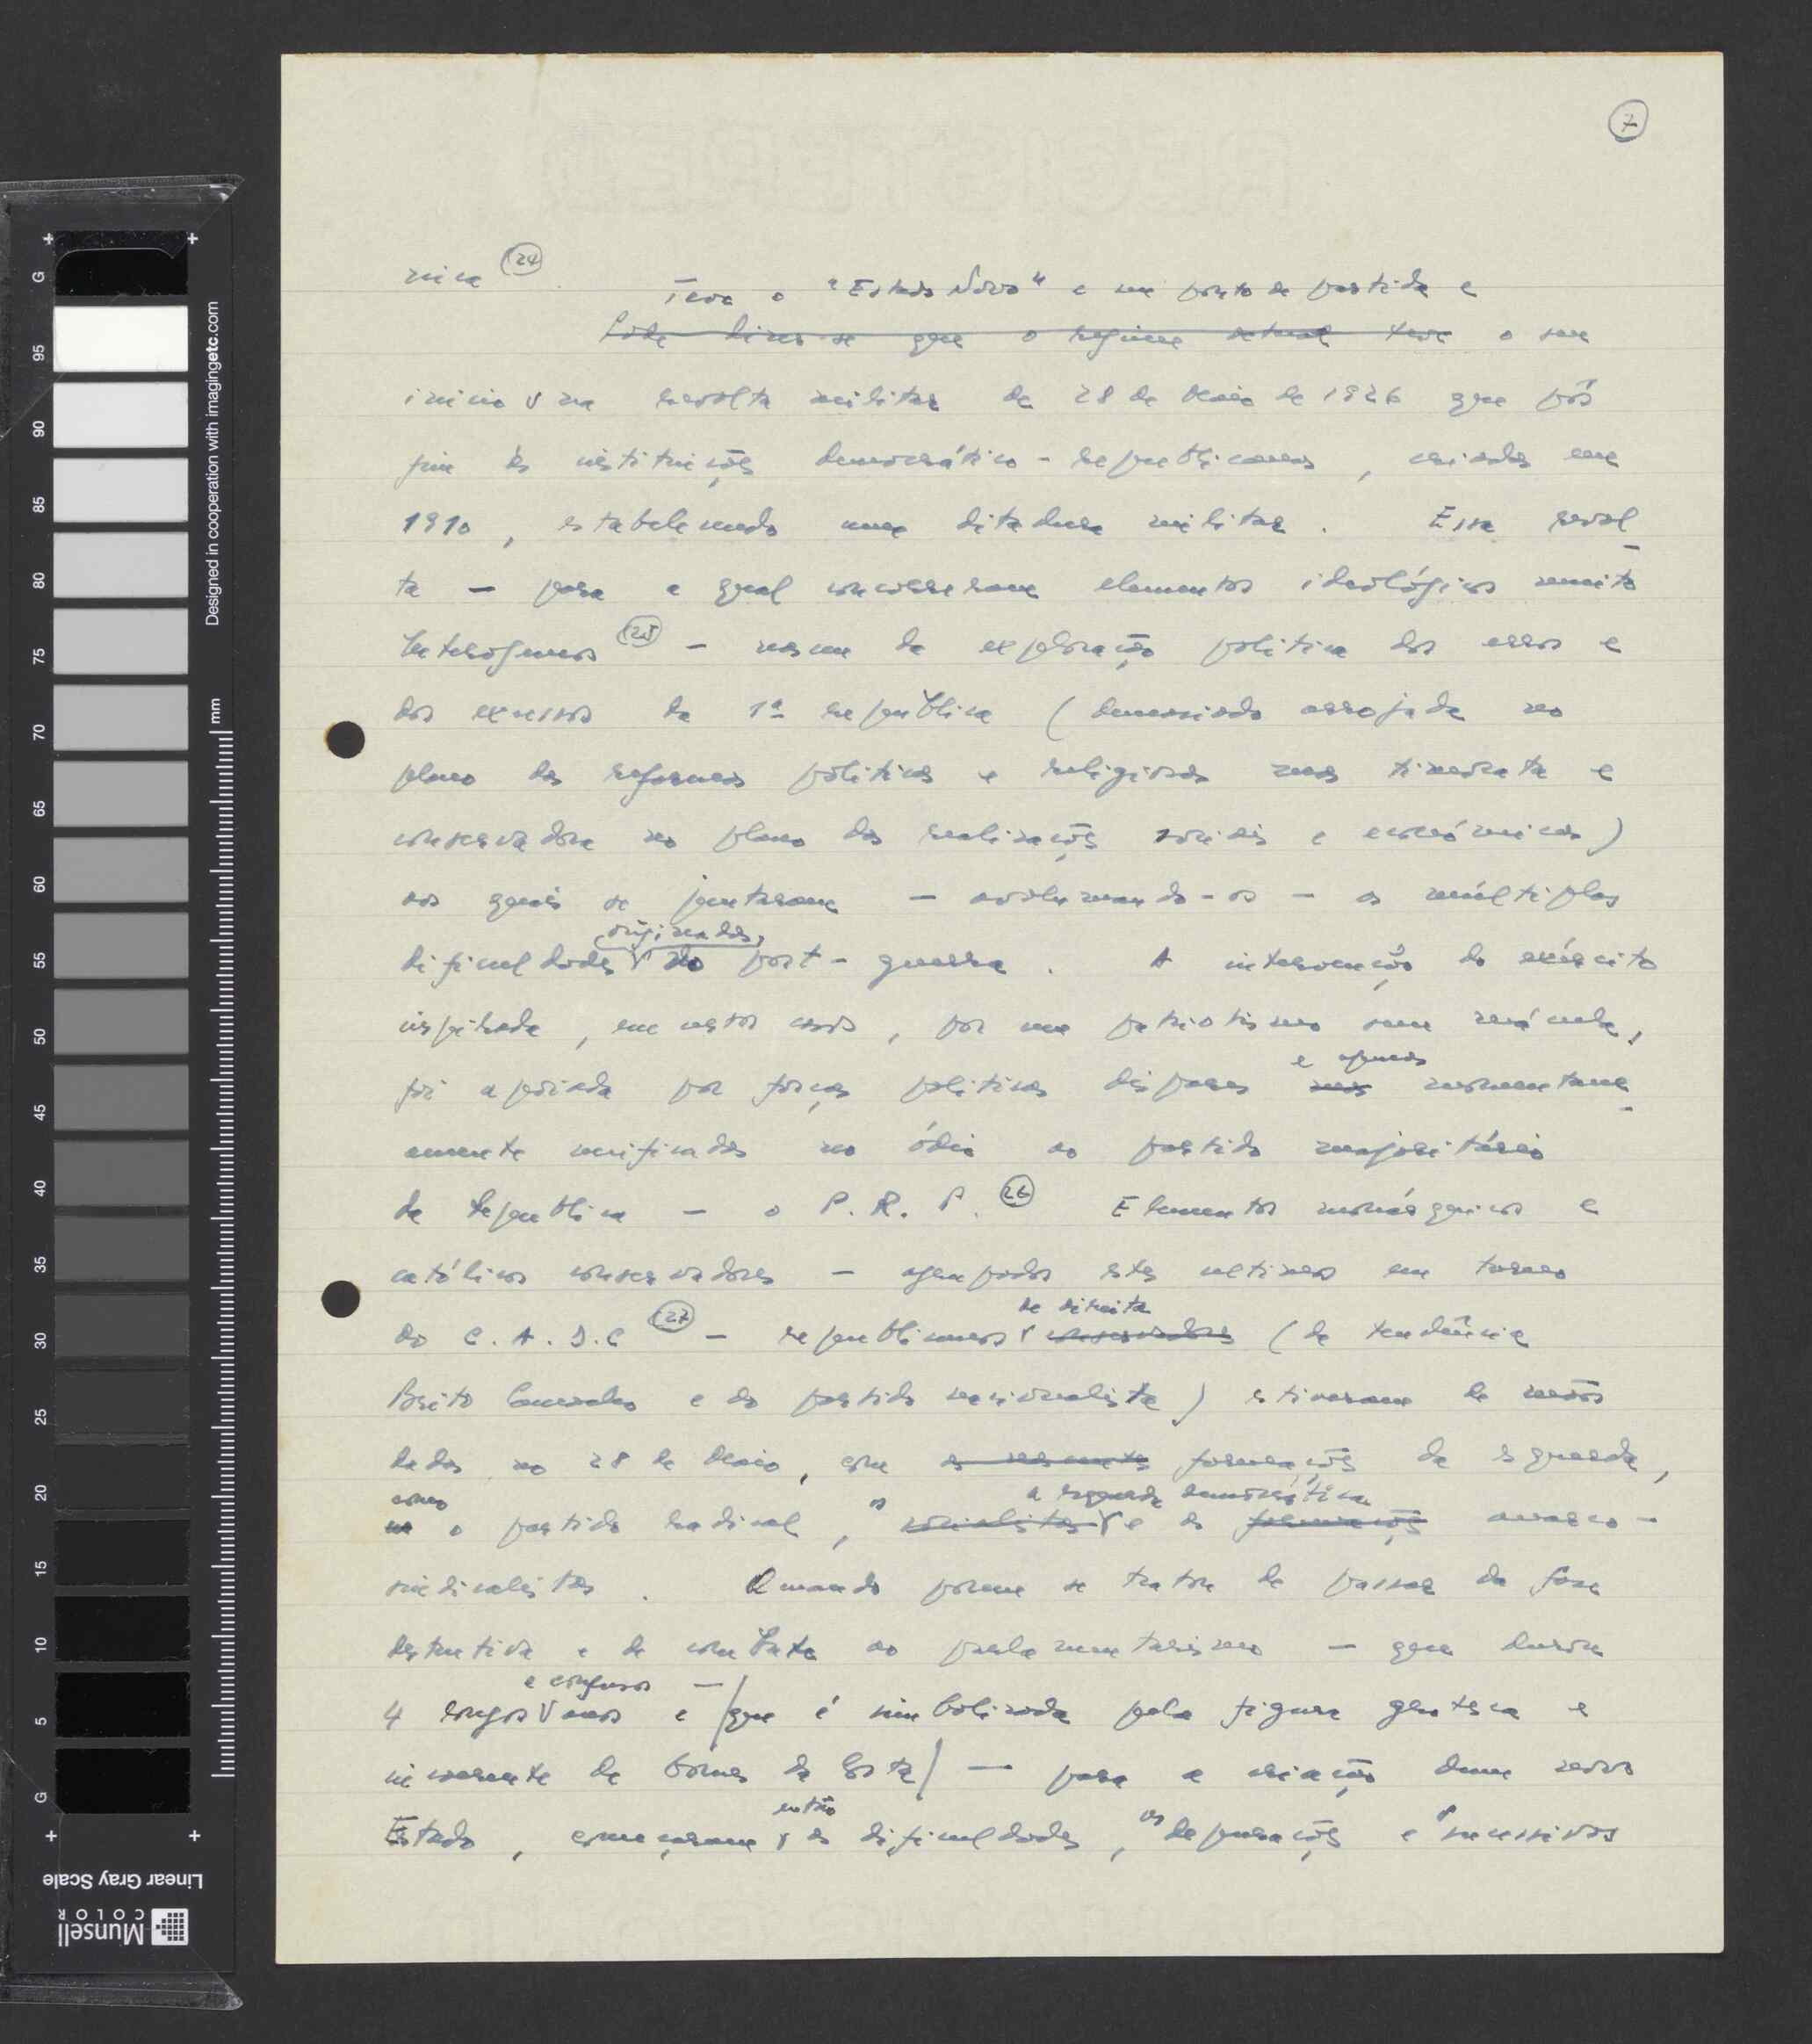 7
nica (24)
Teve o "Estado Novo" o seu ponto de partida e
Pode dizer-se que o regime actual teve o seu
inicio na revolta militar de 28 de Maio de 1926 que pôs
fim às instituições democrático-republicanas, criadas em
1910, estabelecendo uma ditadura militar. Essa revol-
ta — para a qual concorreram elementos ideológicos muito
heterogeneos (25) — nasceu da exploração politica dos erros e
dos excessos da 1ª república (demasiado arrojada no
plano das reformas politicas e religiosas mas timorata e
conservadora no plano das realizações sociais e económicas)
aos quais se juntaram — avolumando-os — as múltiplas
originadas
dificuldades do post-guerra. A intervenção do exército
inspirada, em certos casos, por um patriotismo sem mácula,
e apenas
foi apoiada por forças politicas dispares mas momentane-
amente unificadas no ódio ao partido majoritário
da Republica — o P. R. P. (26) Elementos monárquicos e
católicos conservadores — agrupados estes ultimos em torno
de direita
do C. A. D. C (27) — republicanos conservadores (de tendência
Brito Camacho e do partido nacionalista) estiveram de mãos
dadas no 28 de Maio, com formações da esquerda,
como a esquerda democrática
o partido radical, os socialistas e as formações anarco-
sindicalistas. Quando porem se tratou de passar da fase
destrutiva e de combate ao parlamentarismo — que durou
e confusos —
4 longos anos e que é simbolizada pela figura grotesca e
incoerente de Gomes da Costa — para a criação dum novo
então
Estado, começaram as dificuldades, as depurações e sucessivas
Designed in cooperation with imagingetc.com
mm
G 95 90 85 80 75 70 65 60 55 50 45 40 35 30 25 20 15 10 5 G
Linear Gray Scale
Munsell
COLOR